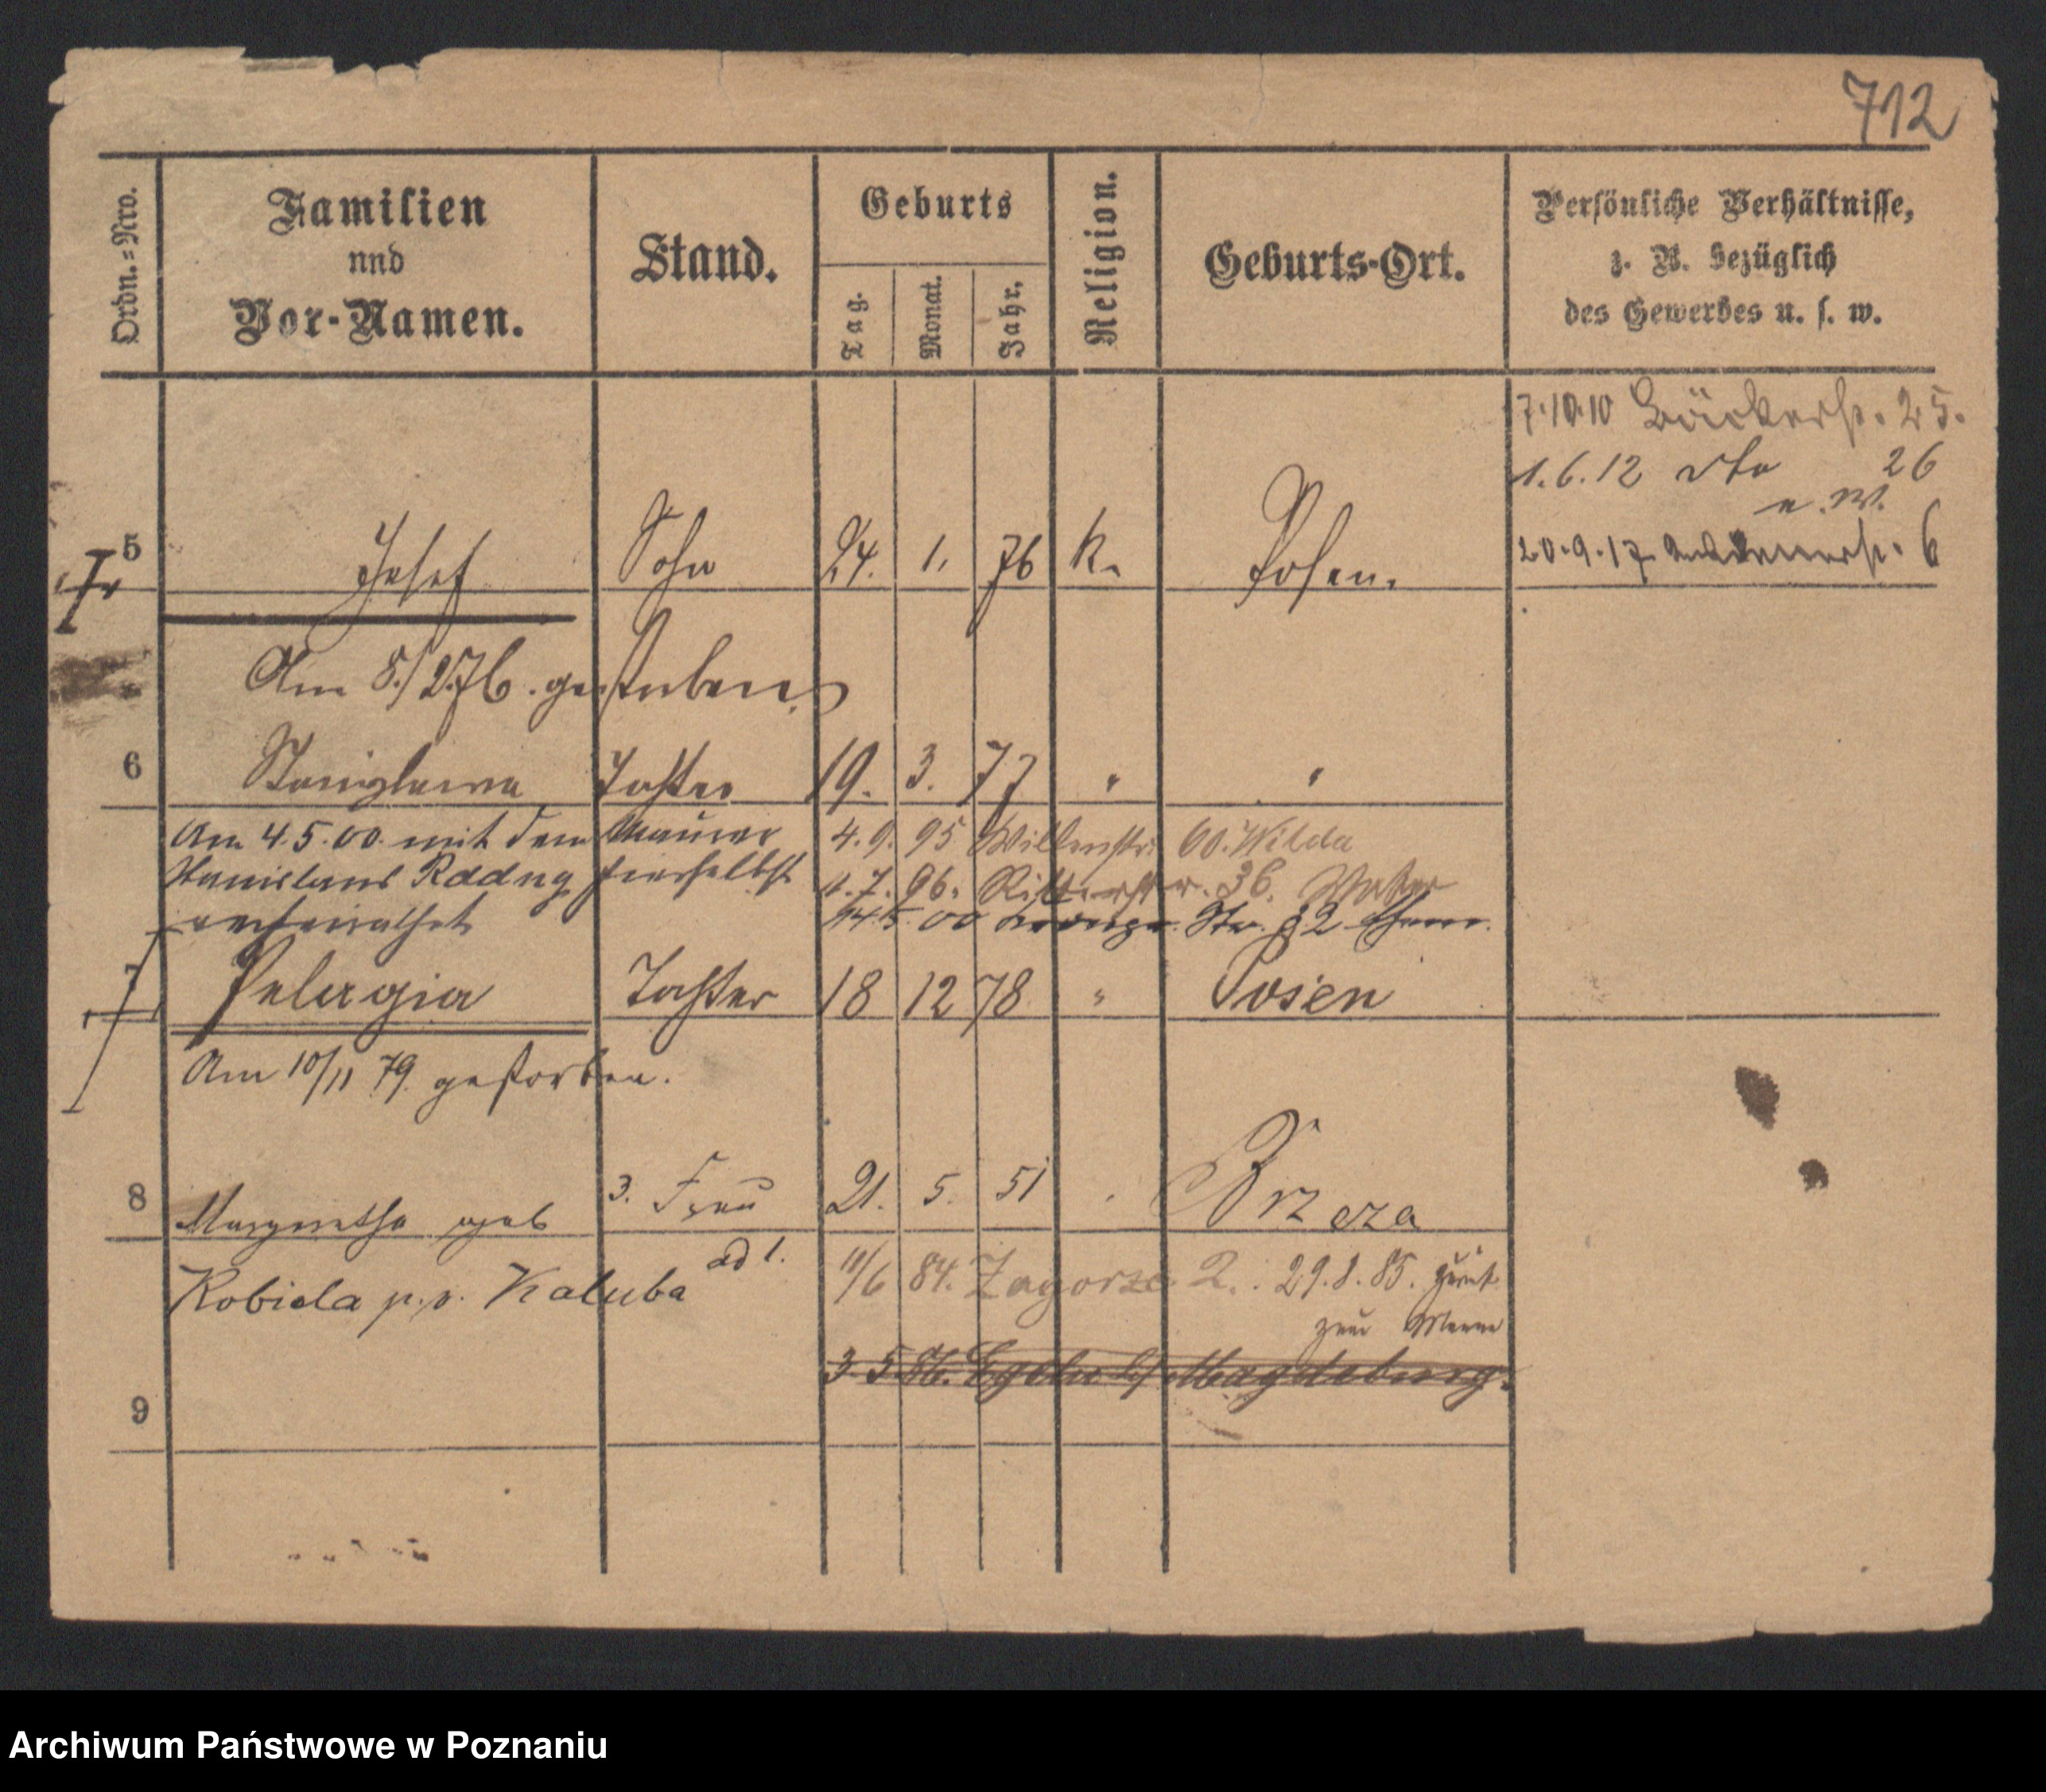 712
Ordn.=Nro.
Familien
und
Vor-Namen.
Stand.
Geburts
Tag.
Monat.
Jahr.
Religion.
Geburts-Ort.
Persönliche Verhältnisse,
z. B. bezüglich
des Gewerbes u. s. w.
7.10.10 Bäckerstr. 25.
1.6.12 dto 26
n. W.
5 Josef Sohn 24. 1. 76 k. Posen.
20.9.17 6
Am 8./2.76. gestorben
6 Stanislawa Tochter 19. 3. 77 " "
Am 4.5.00. mit dem Maurer
4.9.95 60. Wilda
Stanislaus hierselbst
1.7.96. Ritterstr. 36.
verheirathet
00 Str. 32
7 Pelagia Tochter 18 12 78 " Posen
Am 10/11 79. gestorben.
8 Margaretha geb 3. Frau 21. 5. 51 Brzeza
ad 1.
Kobiela p.v. Kaluba
11/6 84. Zagorze 2. 29.8.85.
zum Mann
3. 5. 86. Egeln b/ Magdeburg.
9
Archiwum Państwowe w Poznaniu